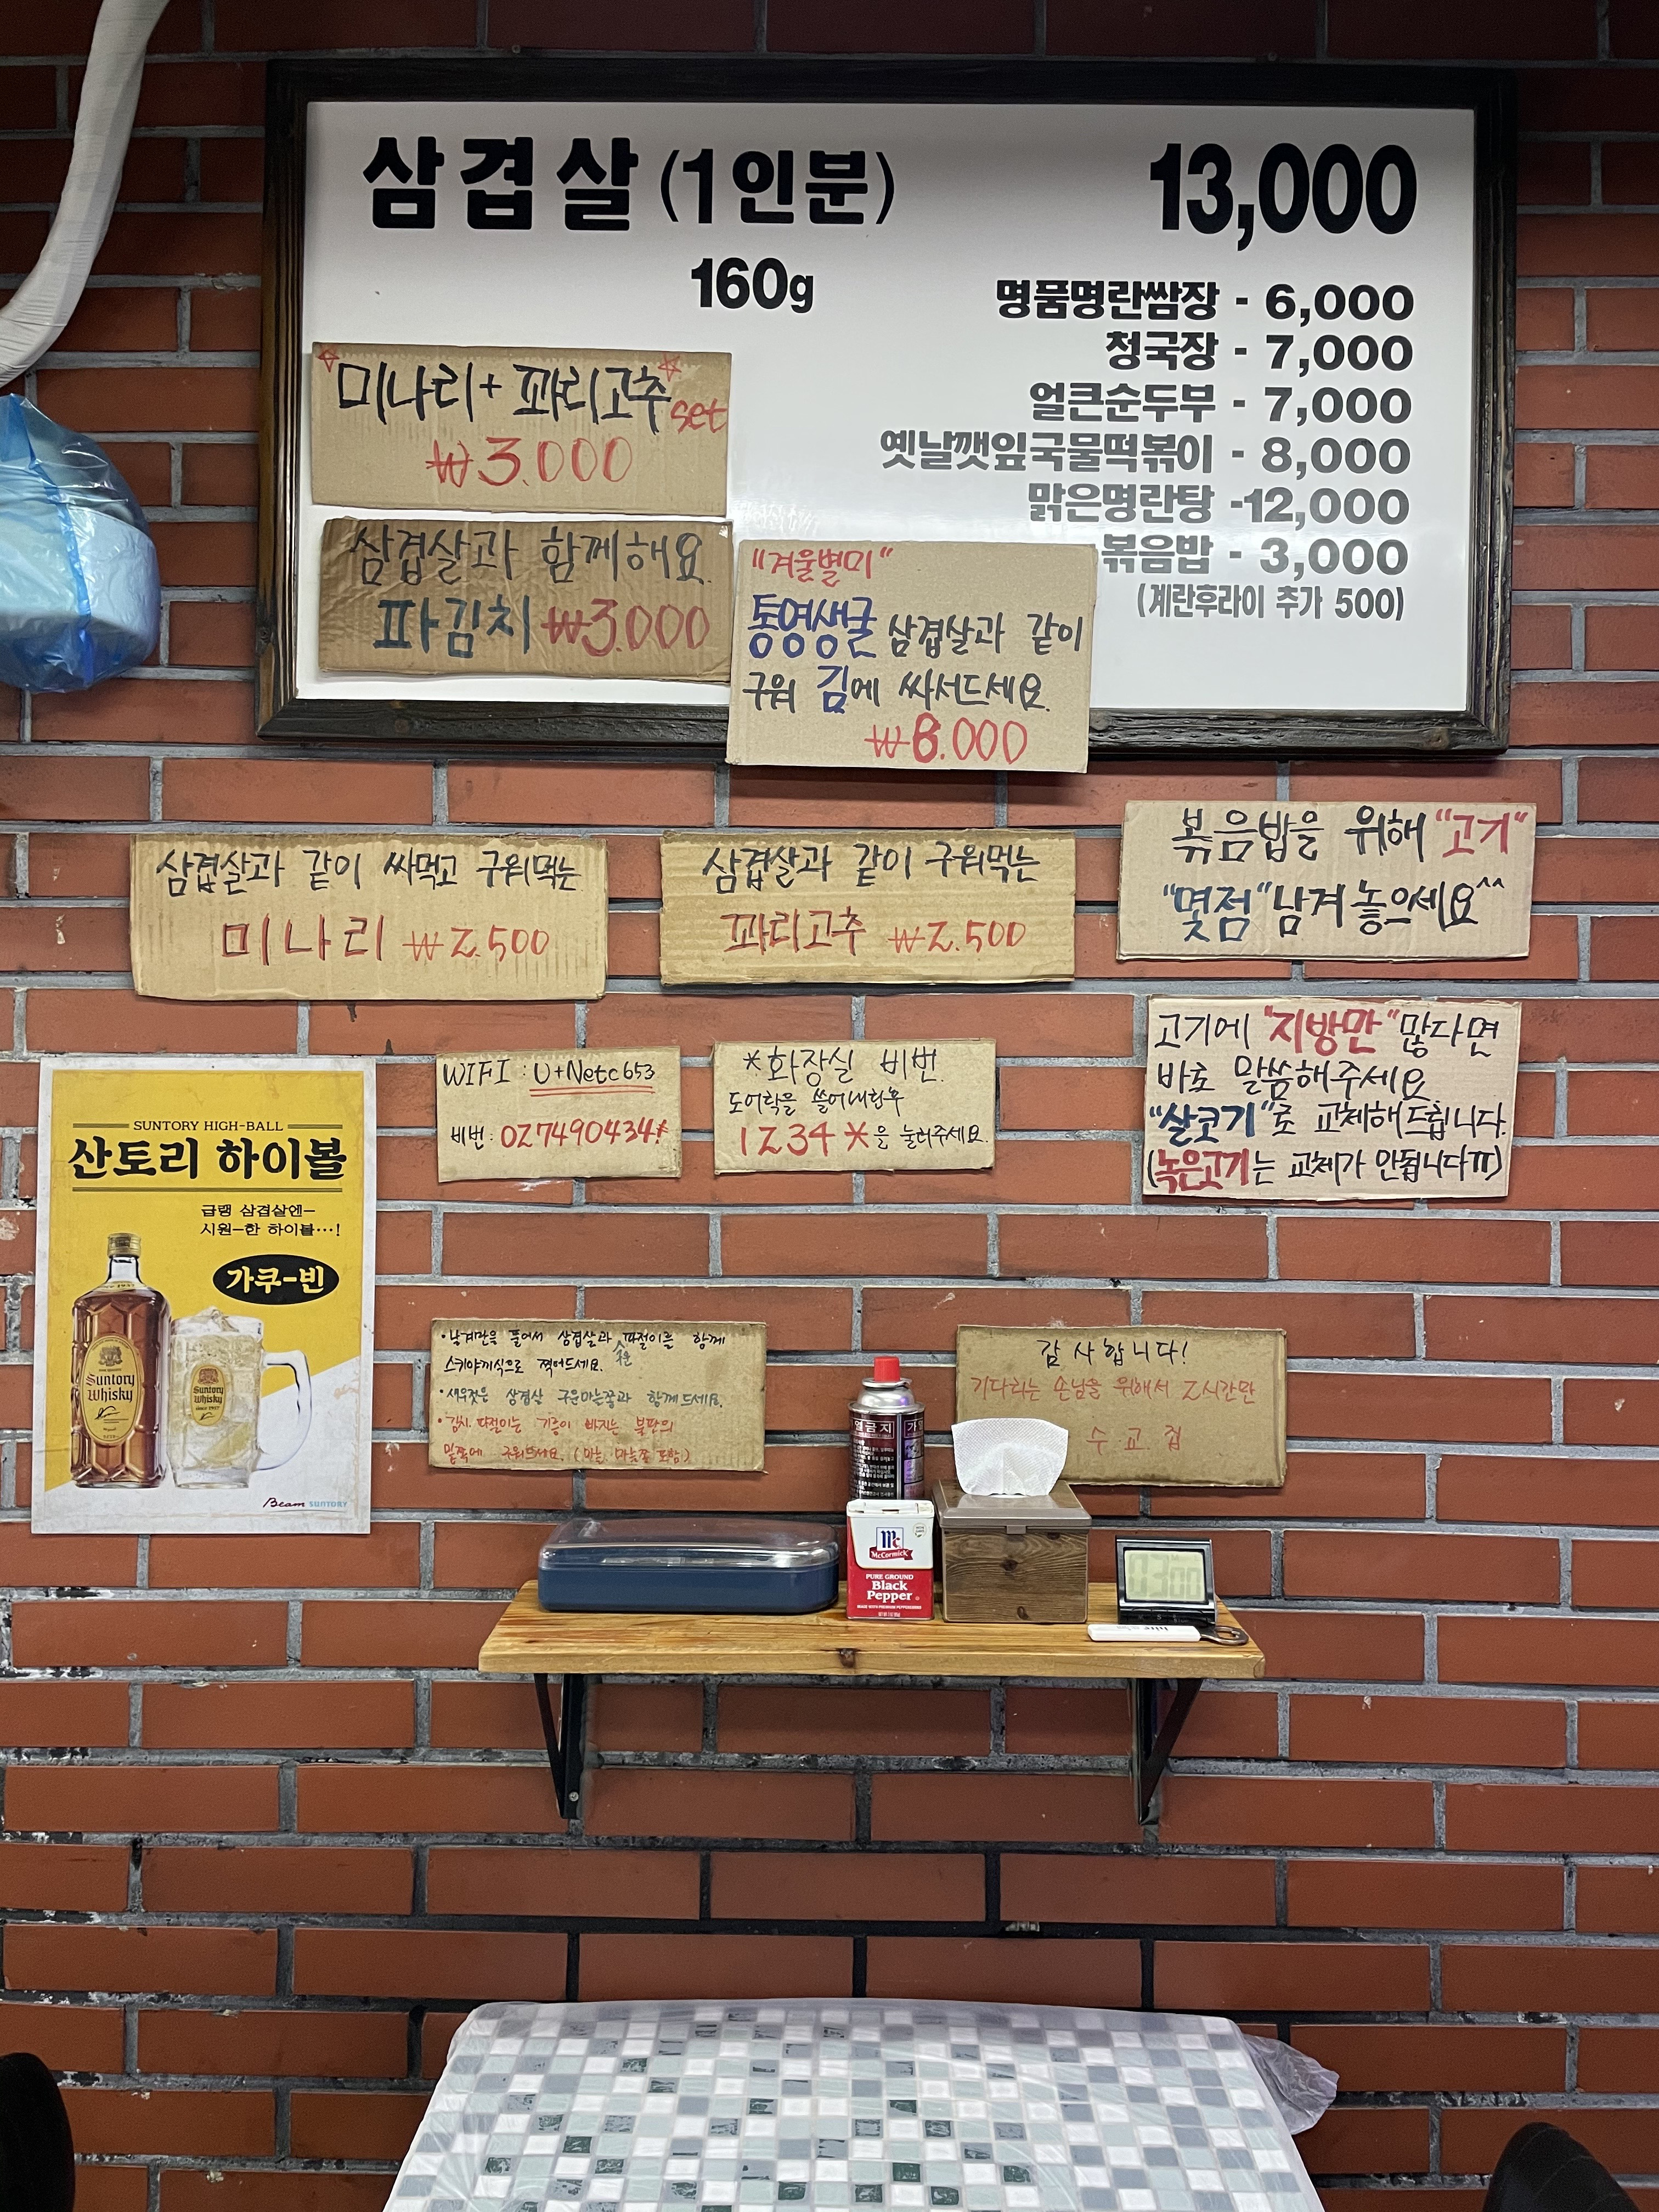 삼겹살 (1인분) 13,000
160g
명품명란쌈장 - 6,000
청국장 - 7,000
얼큰순두부 - 7,000
옛날깻잎국물떡볶이 - 8,000
맑은명란탕 -12,000
볶음밥 - 3,000
(계란후라이 추가 500)
미나리+꽈리고추 set
₩3.000
삼겹살과 함께해요.
파김치 ₩3.000
"겨울별미"
통영생굴 삼겹살과 같이
구워 김에 싸서드세요.
₩8.000
삼겹살과 같이 싸먹고 구워먹는
미나리 ₩2.500
삼겹살과 같이 구워먹는
꽈리고추 ₩2.500
볶음밥을 위해 "고기"
"몇점"남겨놓으세요^^
고기에 "지방만"많다면
바로 말씀해주세요
"살코기"로 교체해드립니다.
(녹은고기는 교체가 안됩니다ㅠ)
WIFI : U+Netc653
비번: 027490434*
*화장실 비번.
도어락을 쓸어내린후
1234*을 눌러주세요.
SUNTORY HIGH-BALL
산토리 하이볼
급랭 삼겹살엔-
시원-한 하이볼…!
가쿠-빈
Suntory
Whisky
Suntory
Whisky
Beam SUNTORY
스키야끼식으로 찍어드세요.
·새우젓은 삼겹살 구운마늘쫑과 함께드세요.
·김치, 파절이는 기름이 빠지는 불판의
밑쪽에 구워드세요. (마늘, 마늘쫑 포함)
감사합니다!
기다리는 손님을 위해서 2시간만
McCormick
PURE GROUND
Black
Pepper
03:00